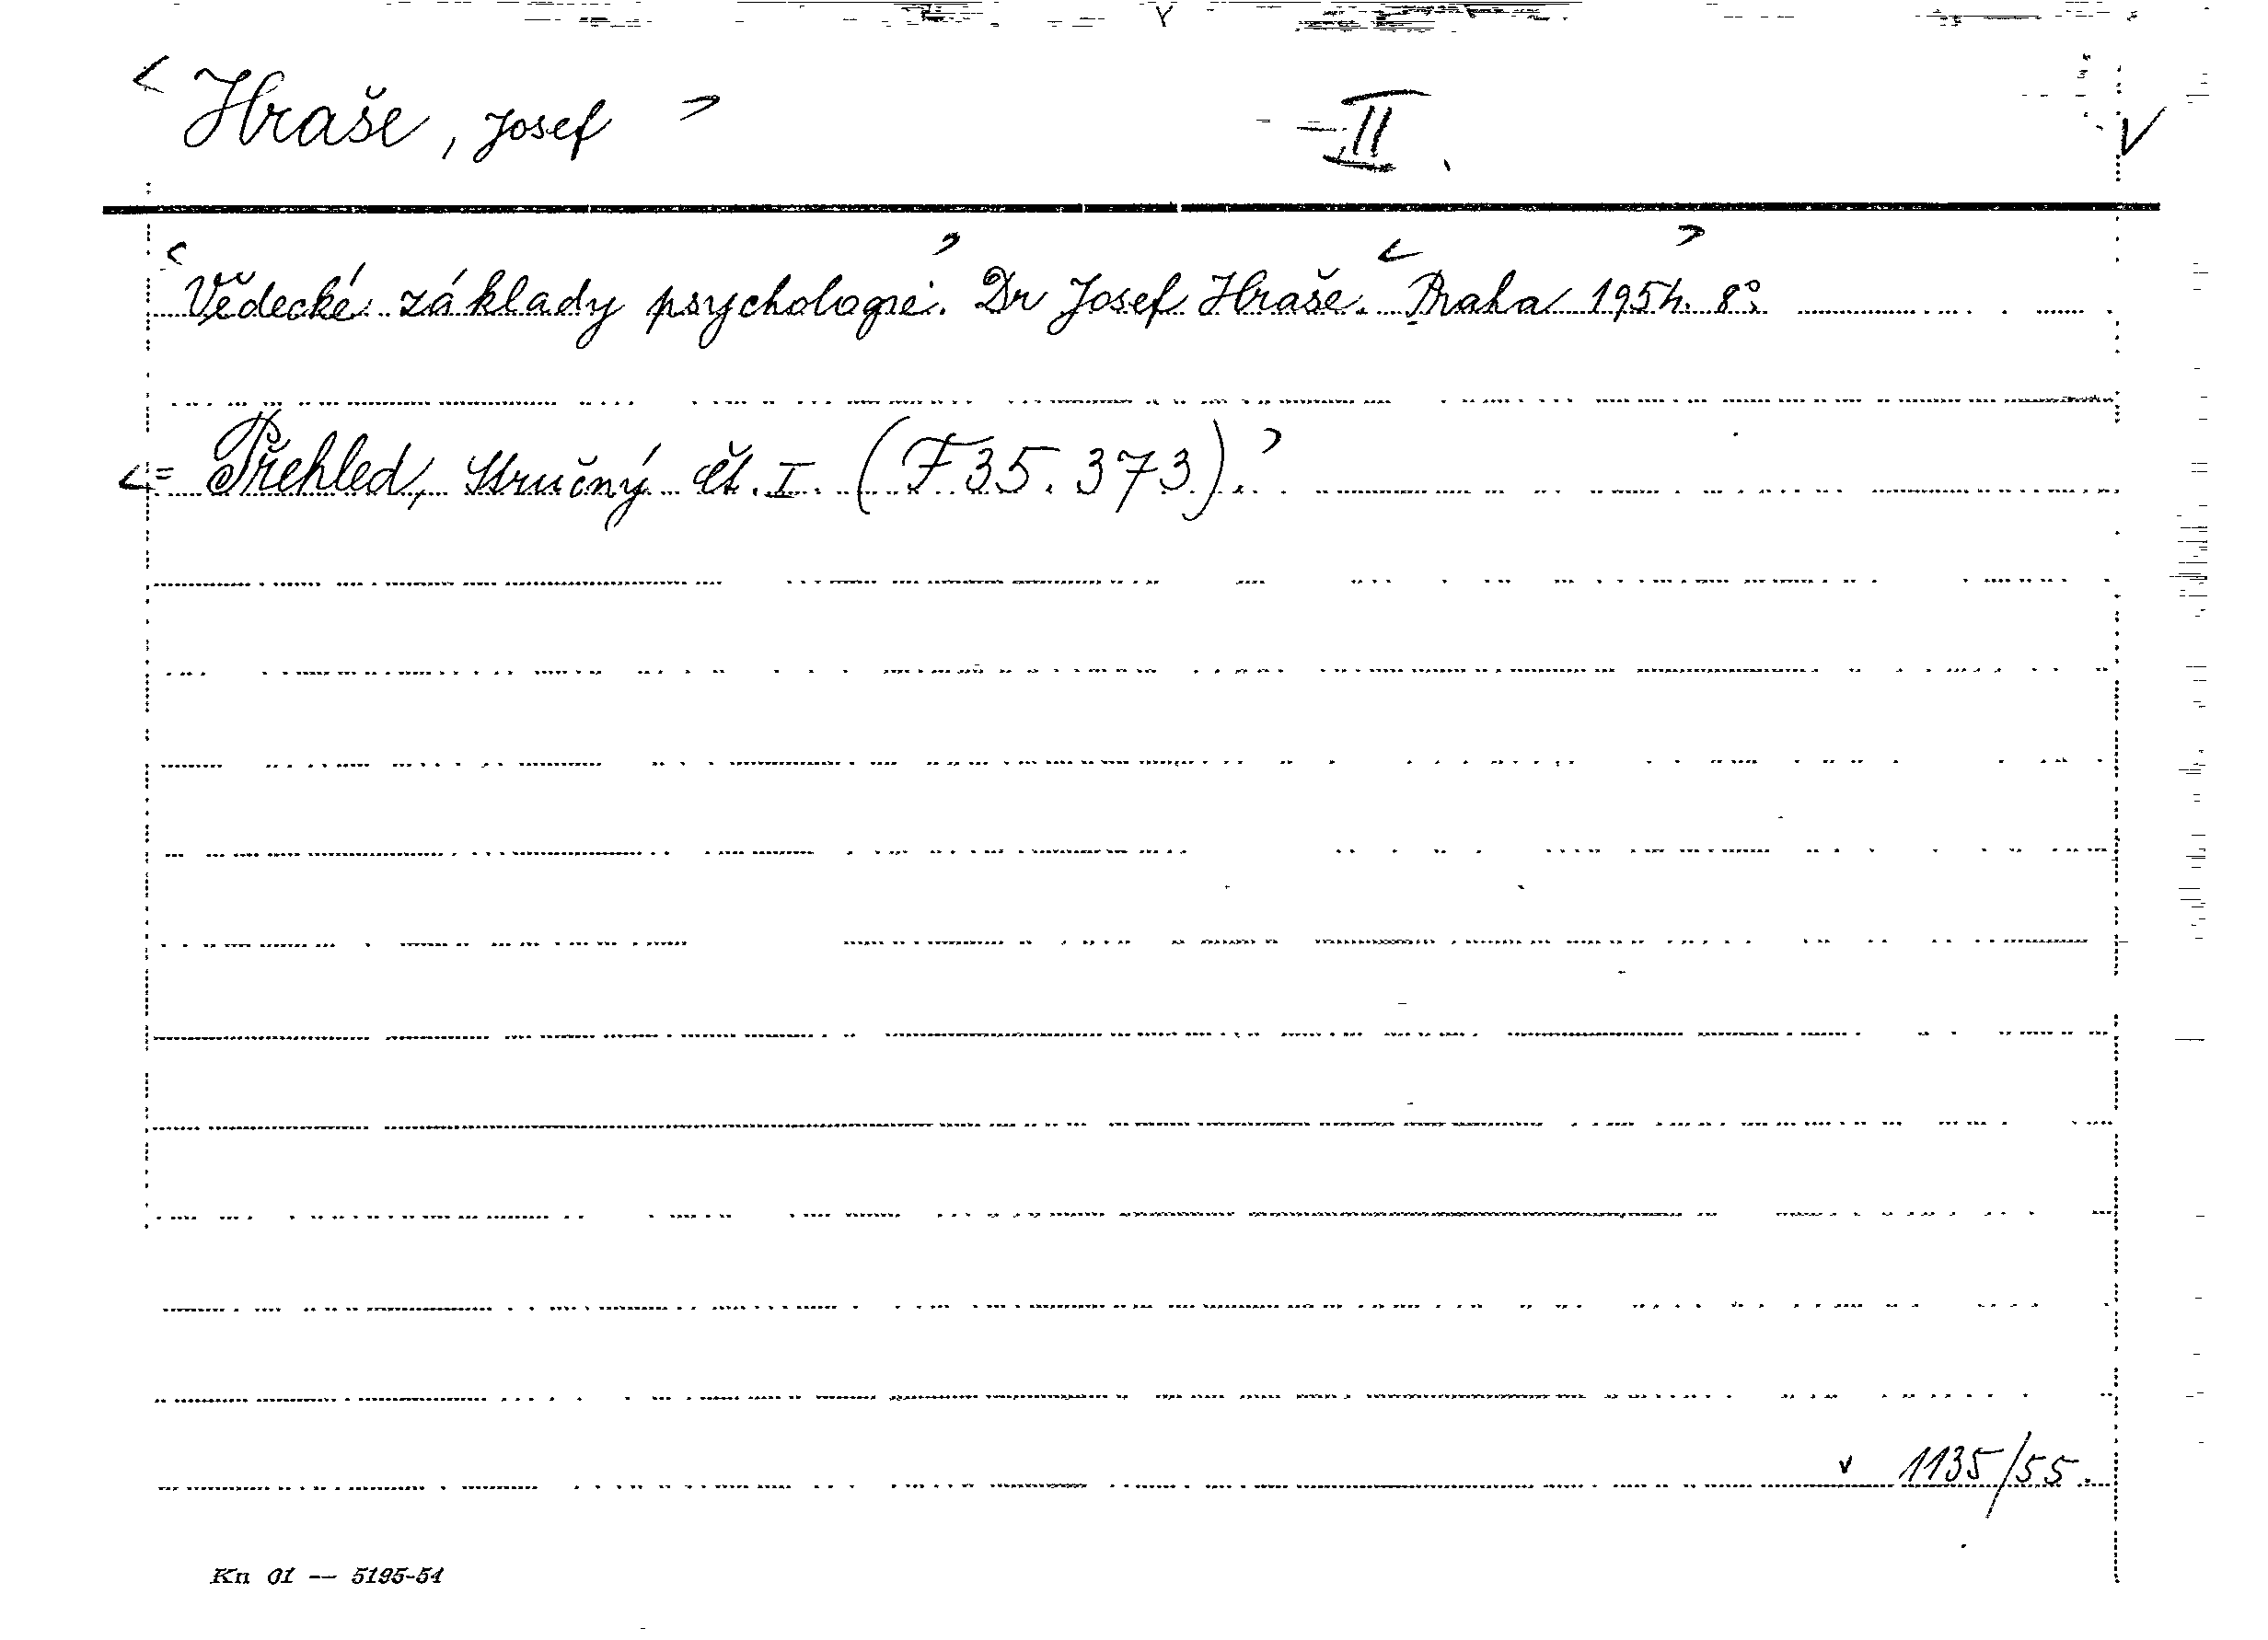 < Hraše, Josef > II. V
< Vědecké základy psychologie. > Dr Josef Hraše. < Praha 1954. 8°. >
<= Přehled, Stručný čt. I. (F 35.373). >
v 1135/55.
Kn 01 — 5195-54